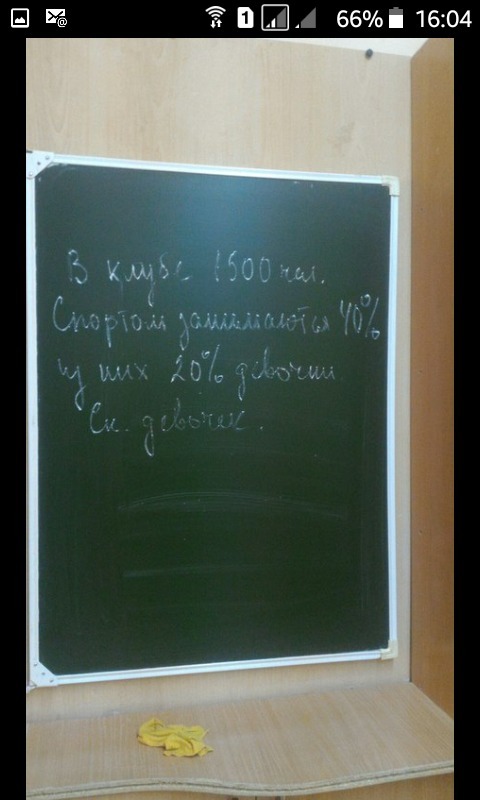 66% 16:04
1
В клубе 1500 чел.
Спортом занимаются 40%
из них 20% девочки
Ск. девочек.